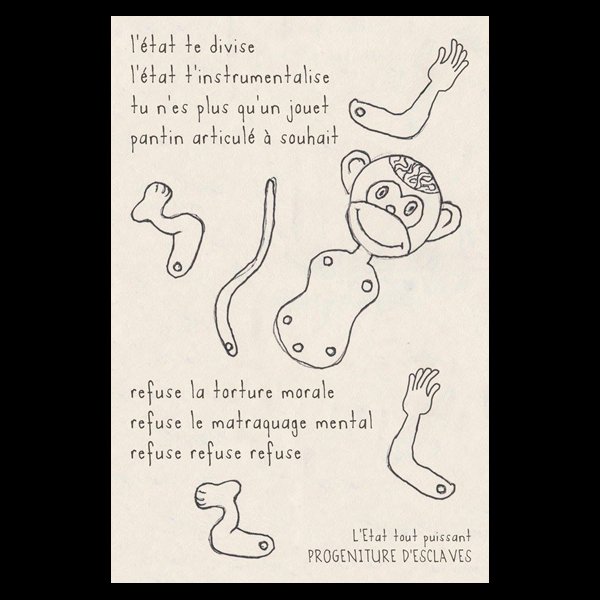 l'état te divise
l'état t'instrumentalise
tu n'es plus qu'un jouet
pantin articulé à souhait
refuse la torture morale
refuse le matraquage mental
refuse refuse refuse
L'Etat tout puissant
PROGENITURE D'ESCLAVES